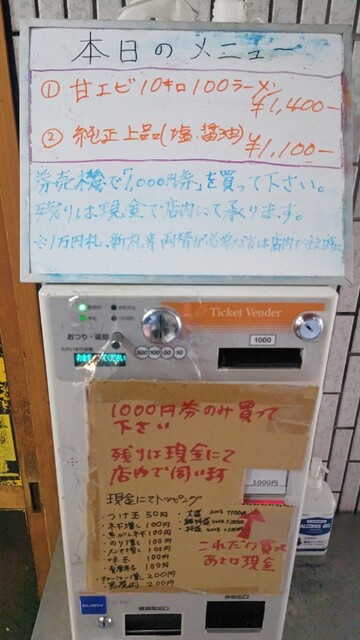 本日のメニュー
① 甘エビ10キロ100ラーメン
¥1,400-
② 純正上品(塩.醤油)
¥1,100-
券売機で「1,000円券」を買って下さい。
残りは現金で店内にて承ります。
※1万円札、新札等両替が必要な方は店内で注文前に
Ticket Vender
おつり・返却
500 100 50 10
1000
1000円券のみ買って
下さい
残りは現金にて
店内で伺います
1000円
現金にてトッピング
・つけ玉 50円
・ネギ増 100円
ネギ 100円
・のり増 100円
・メンマ増 100円
・味玉 100円
100円
・チャーシュー増 200円
200円
これだけ買って
あとは現金
ALCOHOL GEL